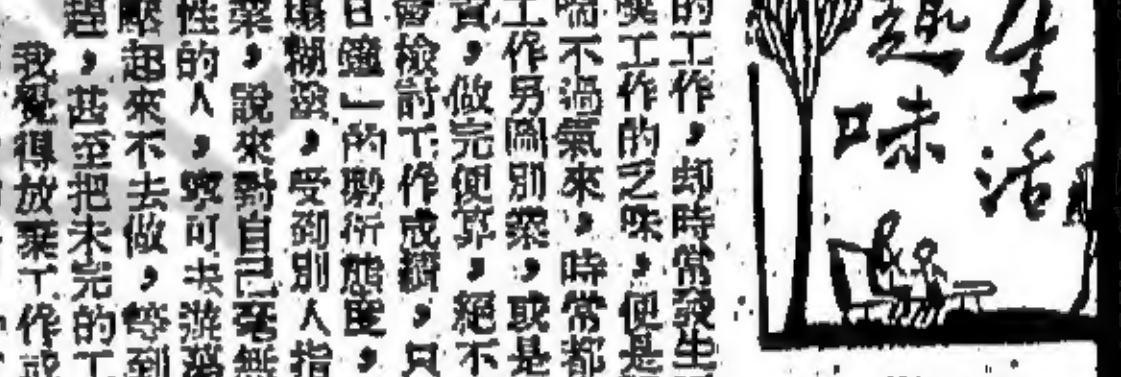 生活
趣味
的工作，却時常發生
工作的乏味，便是
喘不過氣來，時常都
工作另圖別業，或是
責，做完便算，絕不
會檢討工作成績，只
日鐘」的敷衍態度，
塌糊塗，受到別人指
業，說來對自己毫無
性的人，寧可去遊蕩
壓起來不去做，等到
趄，甚至把未完的工
我覺得放棄工作或